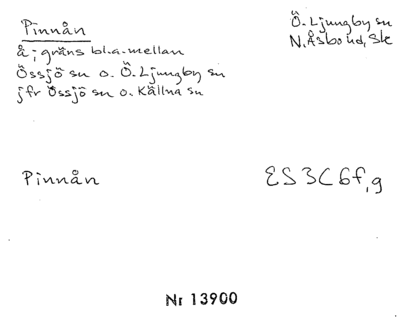 Pinnån
Ö. Ljungby sn
N. Åsbo hd, Sk
å; gräns bl.a. mellan
Össjö sn o. Ö. Ljungby sn
jfr Össjö sn o. Källna sn
Pinnån
ES3C6f,g
Nr 13900